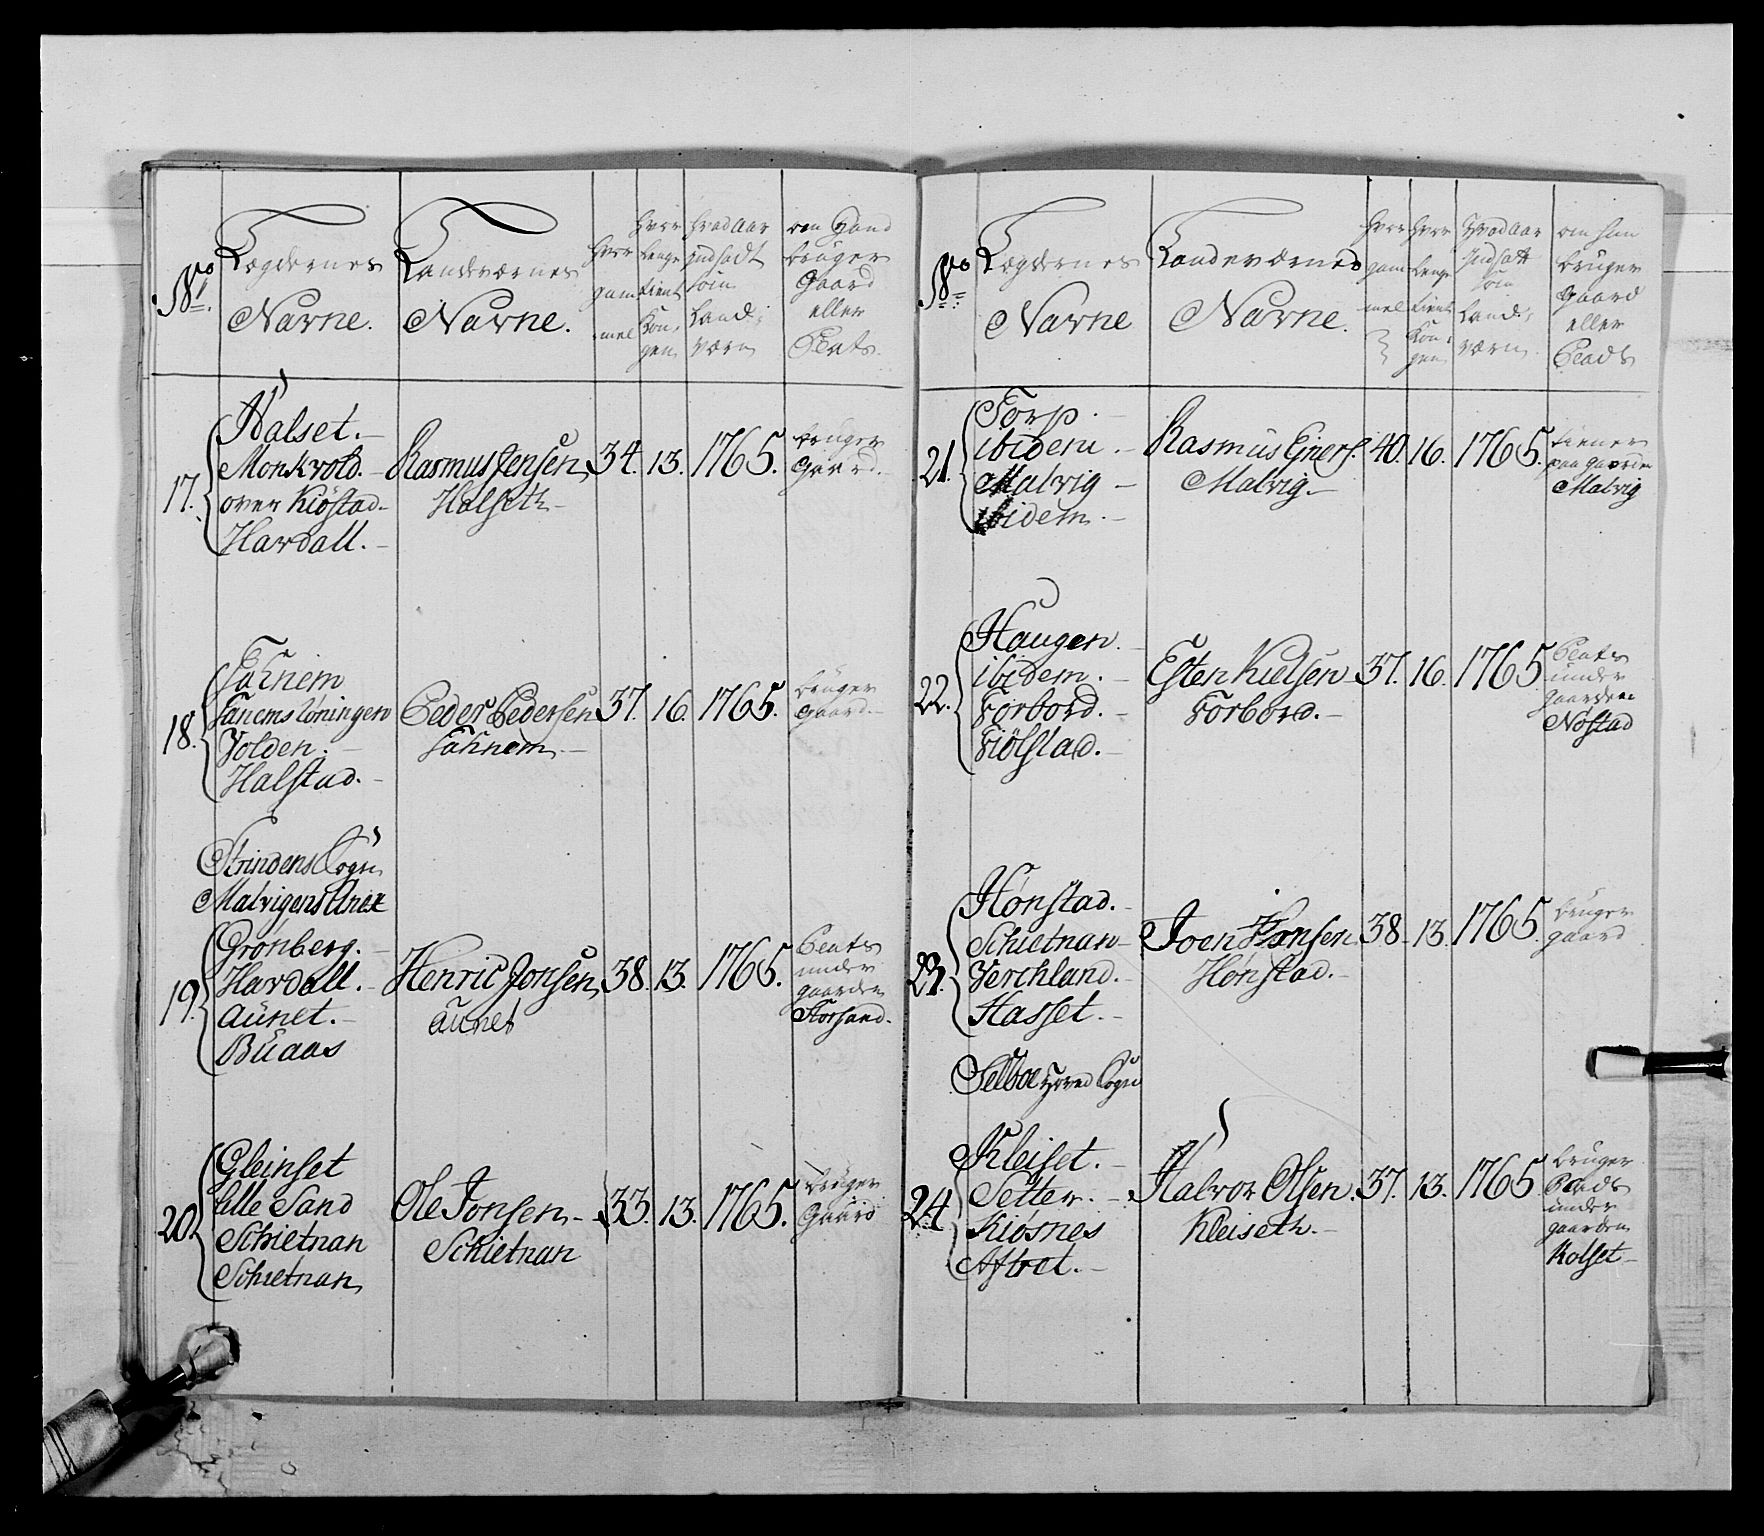 No
Lægdernes
Navne.
Landeværnes
Navne.
hvor
gam
mel
hvor
Længe
tient
Kon-
gen
hvad aar
indsadt
som
Land-
værn
om Hand
bruger
Gaard
eller
Pladts.
17.
Halset.
Monkvold.
over Kiøstad.
Hardall.
Rasmus Jensen
Halseth
34. 13. 1765.
bruger
Gaard.
18.
Sahnem
Sanems Voningen
Volden.
Halstad.
Peder Pedersen
Sahnem.
37. 16. 1765.
bruger
Gaard.
Strindens Sogn
Malvigens Anex
19.
Grønberg.
Hardall.
Aunet.
Buaas
Henric Jonsen
Aunet
38. 13. 1765.
Plats
under
gaarden
Storsand.
20.
Gleinset
Lille Sand
Schietnan
Schietnan
Ole Jonsen
Schietnan
33. 13. 1765.
bruger
Gaard
No
Lægdernes
Navne
Landeværnes
Navne.
hvor
gam
mel
hvor
Længe
tient
Kon-
gen
Hvad aar
Indsatt
som
Land-
værn
om han
bruger
Gaard
eller
Plads
21.
Torp.
ibidem.
Malvig
ibidem.
Rasmus Einers.
Malvig.
40. 16. 1765.
tiener
paa gaarden
Malvig
22.
Haugen.
ibidem.
Forbord.
Fiølstad.
Esten Kielsen
Forbord.
37. 16. 1765
Plats
under
gaarden
Nostad
23.
Hønstad.
Schietnan
Verchland.
Hasset.
Joen Hansen
Hønstad.
38. 13. 1765.
bruger
gaard
Selboe Hoved Sogn
24.
Kleiset.
Setter.
Kiosnes
Aftret.
Halvor Olsen.
Kleiseth.
37. 13. 1765.
bruger
Plads
under
gaarden
Kolset